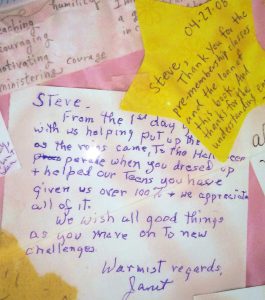 teaching
humility
couraging
motivating
courage
ministering
04-27-08
Steve,
Thank you for the
membership classes
and the loan of
this book. And
thanks for the
understanding
Steve-
From the 1st day you
with us helping put up the
as the rains came, To the Hallo
parade when you dressed up
+ helped our Teens you have
given us over 100% + we appreciate
all of it.
We wish all good things
as you move on to new
challenges.
Warmist regards,
Janit